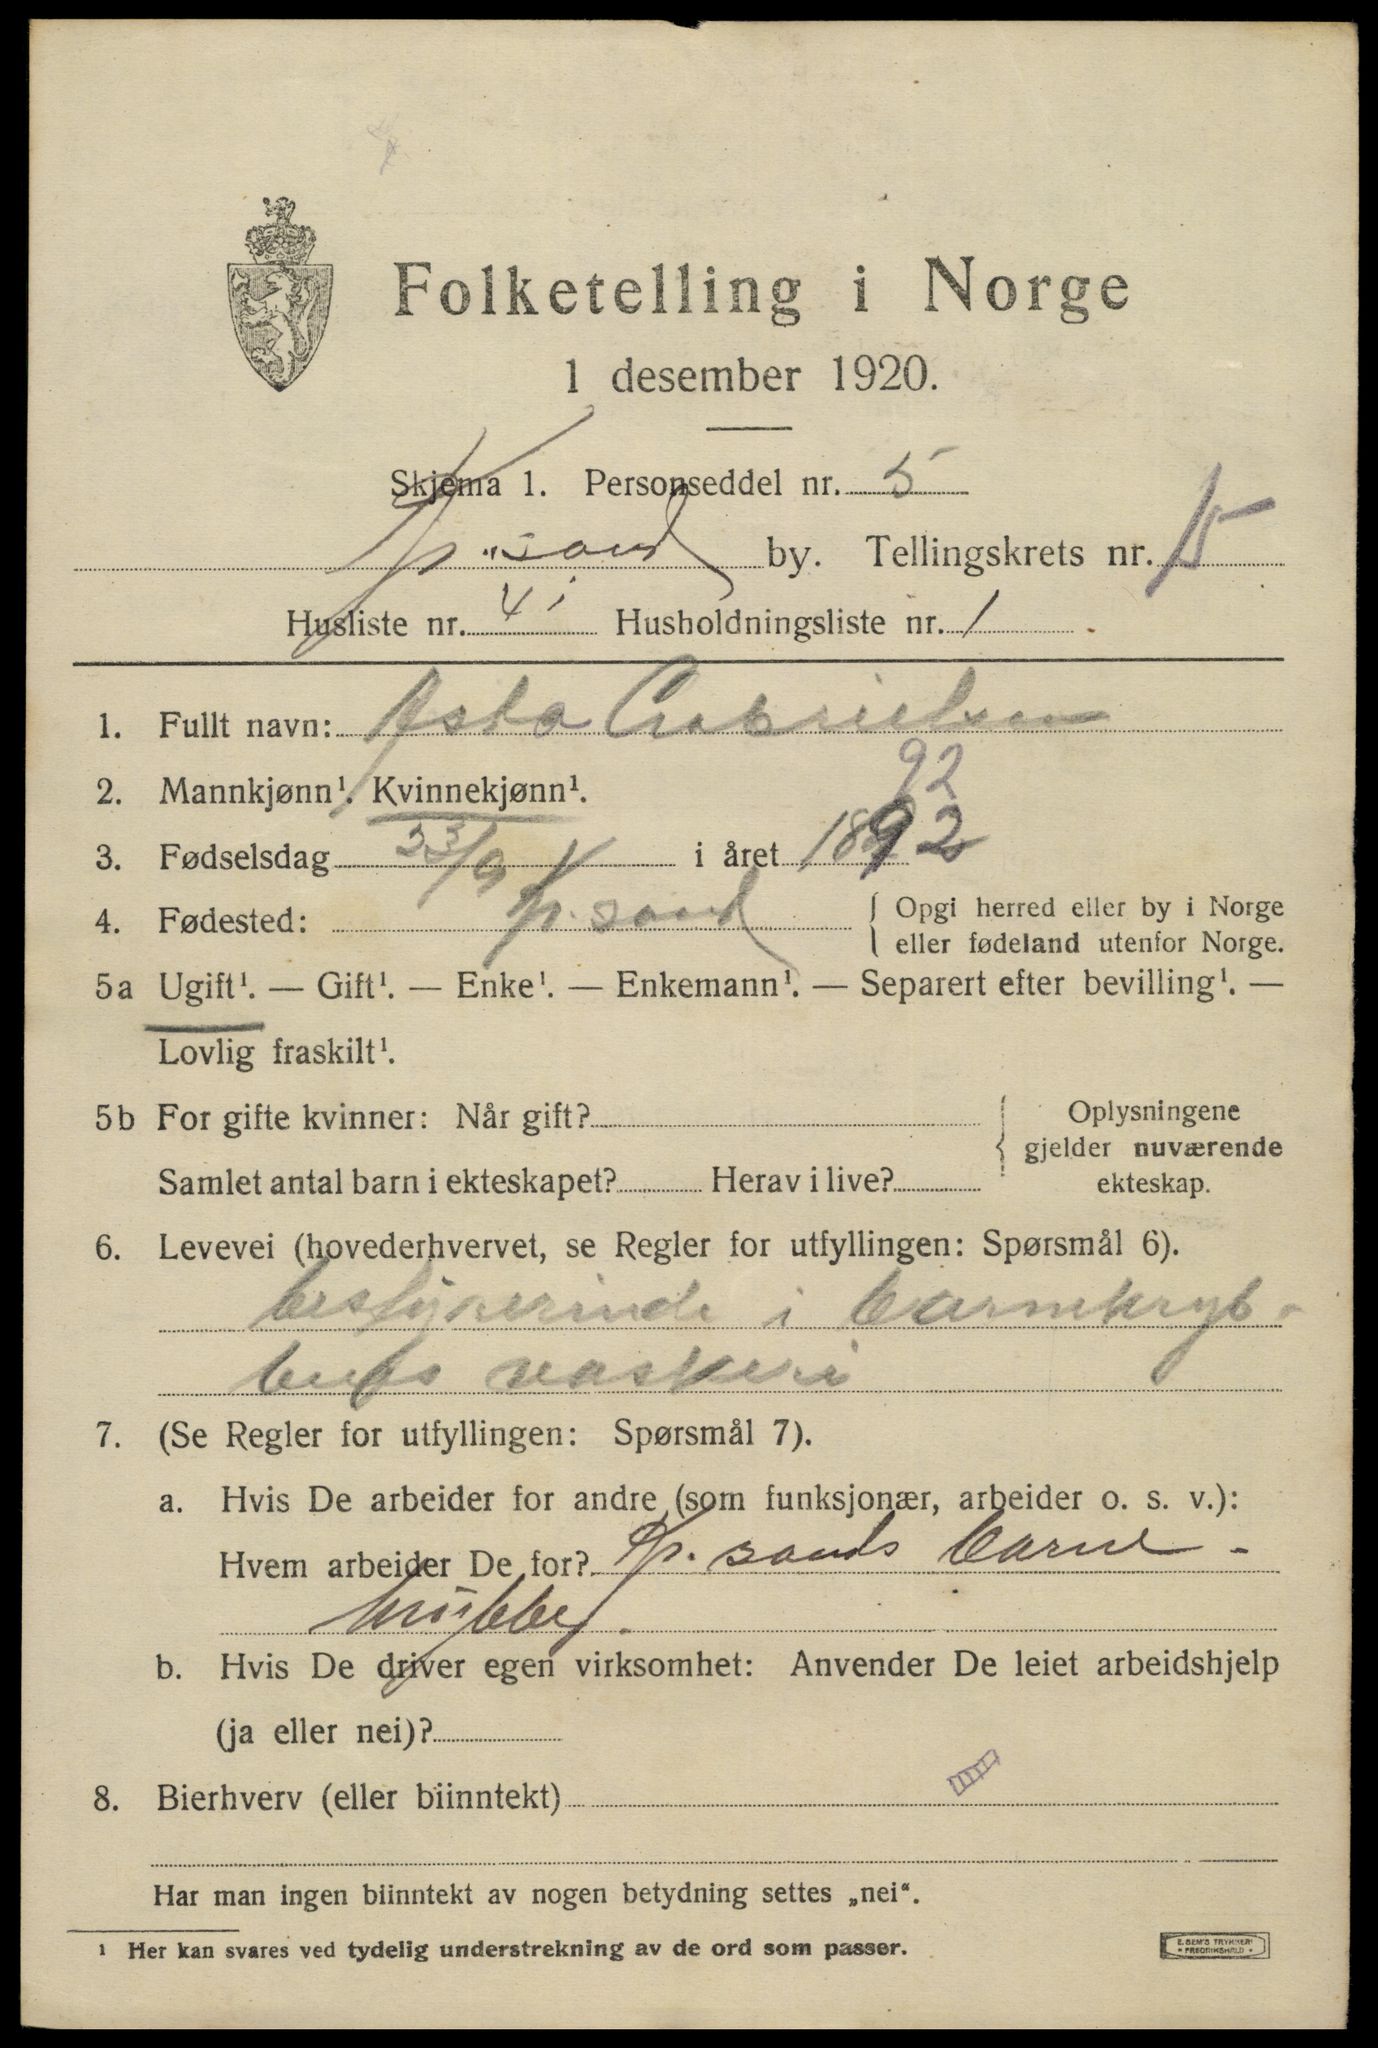 Folketelling i Norge
1 desember 1920.
Skjema 1. Personseddel nr. 5
Kr.sand by. Tellingskrets nr. 15
Husliste nr. 41 Husholdningsliste nr. 1
1. Fullt navn: Asta Gabrielsen
92
2. Mannkjønn¹. Kvinnekjønn¹.
3. Fødselsdag 23/9 i året 1892
4. Fødested: Kr.sand { Opgi herred eller by i Norge
eller fødeland utenfor Norge.
5a Ugift¹. — Gift¹. — Enke¹. — Enkemann¹. — Separert efter bevilling¹. —
Lovlig fraskilt¹.
5b For gifte kvinner: Når gift? { Oplysningene
gjelder nuværende
Samlet antal barn i ekteskapet? Herav i live? ekteskap.
6. Levevei (hovederhvervet, se Regler for utfyllingen: Spørsmål 6).
bestyrerinde i barnekryb-
bens vaskeri
7. (Se Regler for utfyllingen: Spørsmål 7).
a. Hvis De arbeider for andre (som funksjonær, arbeider o. s. v.):
Hvem arbeider De for? Kr.sands barne-
krybbe.
b. Hvis De driver egen virksomhet: Anvender De leiet arbeidshjelp
(ja eller nei)?
8. Bierhverv (eller biinntekt)
Har man ingen biinntekt av nogen betydning settes „nei“.
¹ Her kan svares ved tydelig understrekning av de ord som passer.
E. SEM'S TRYKKERI
• FREDRIKSHALD •